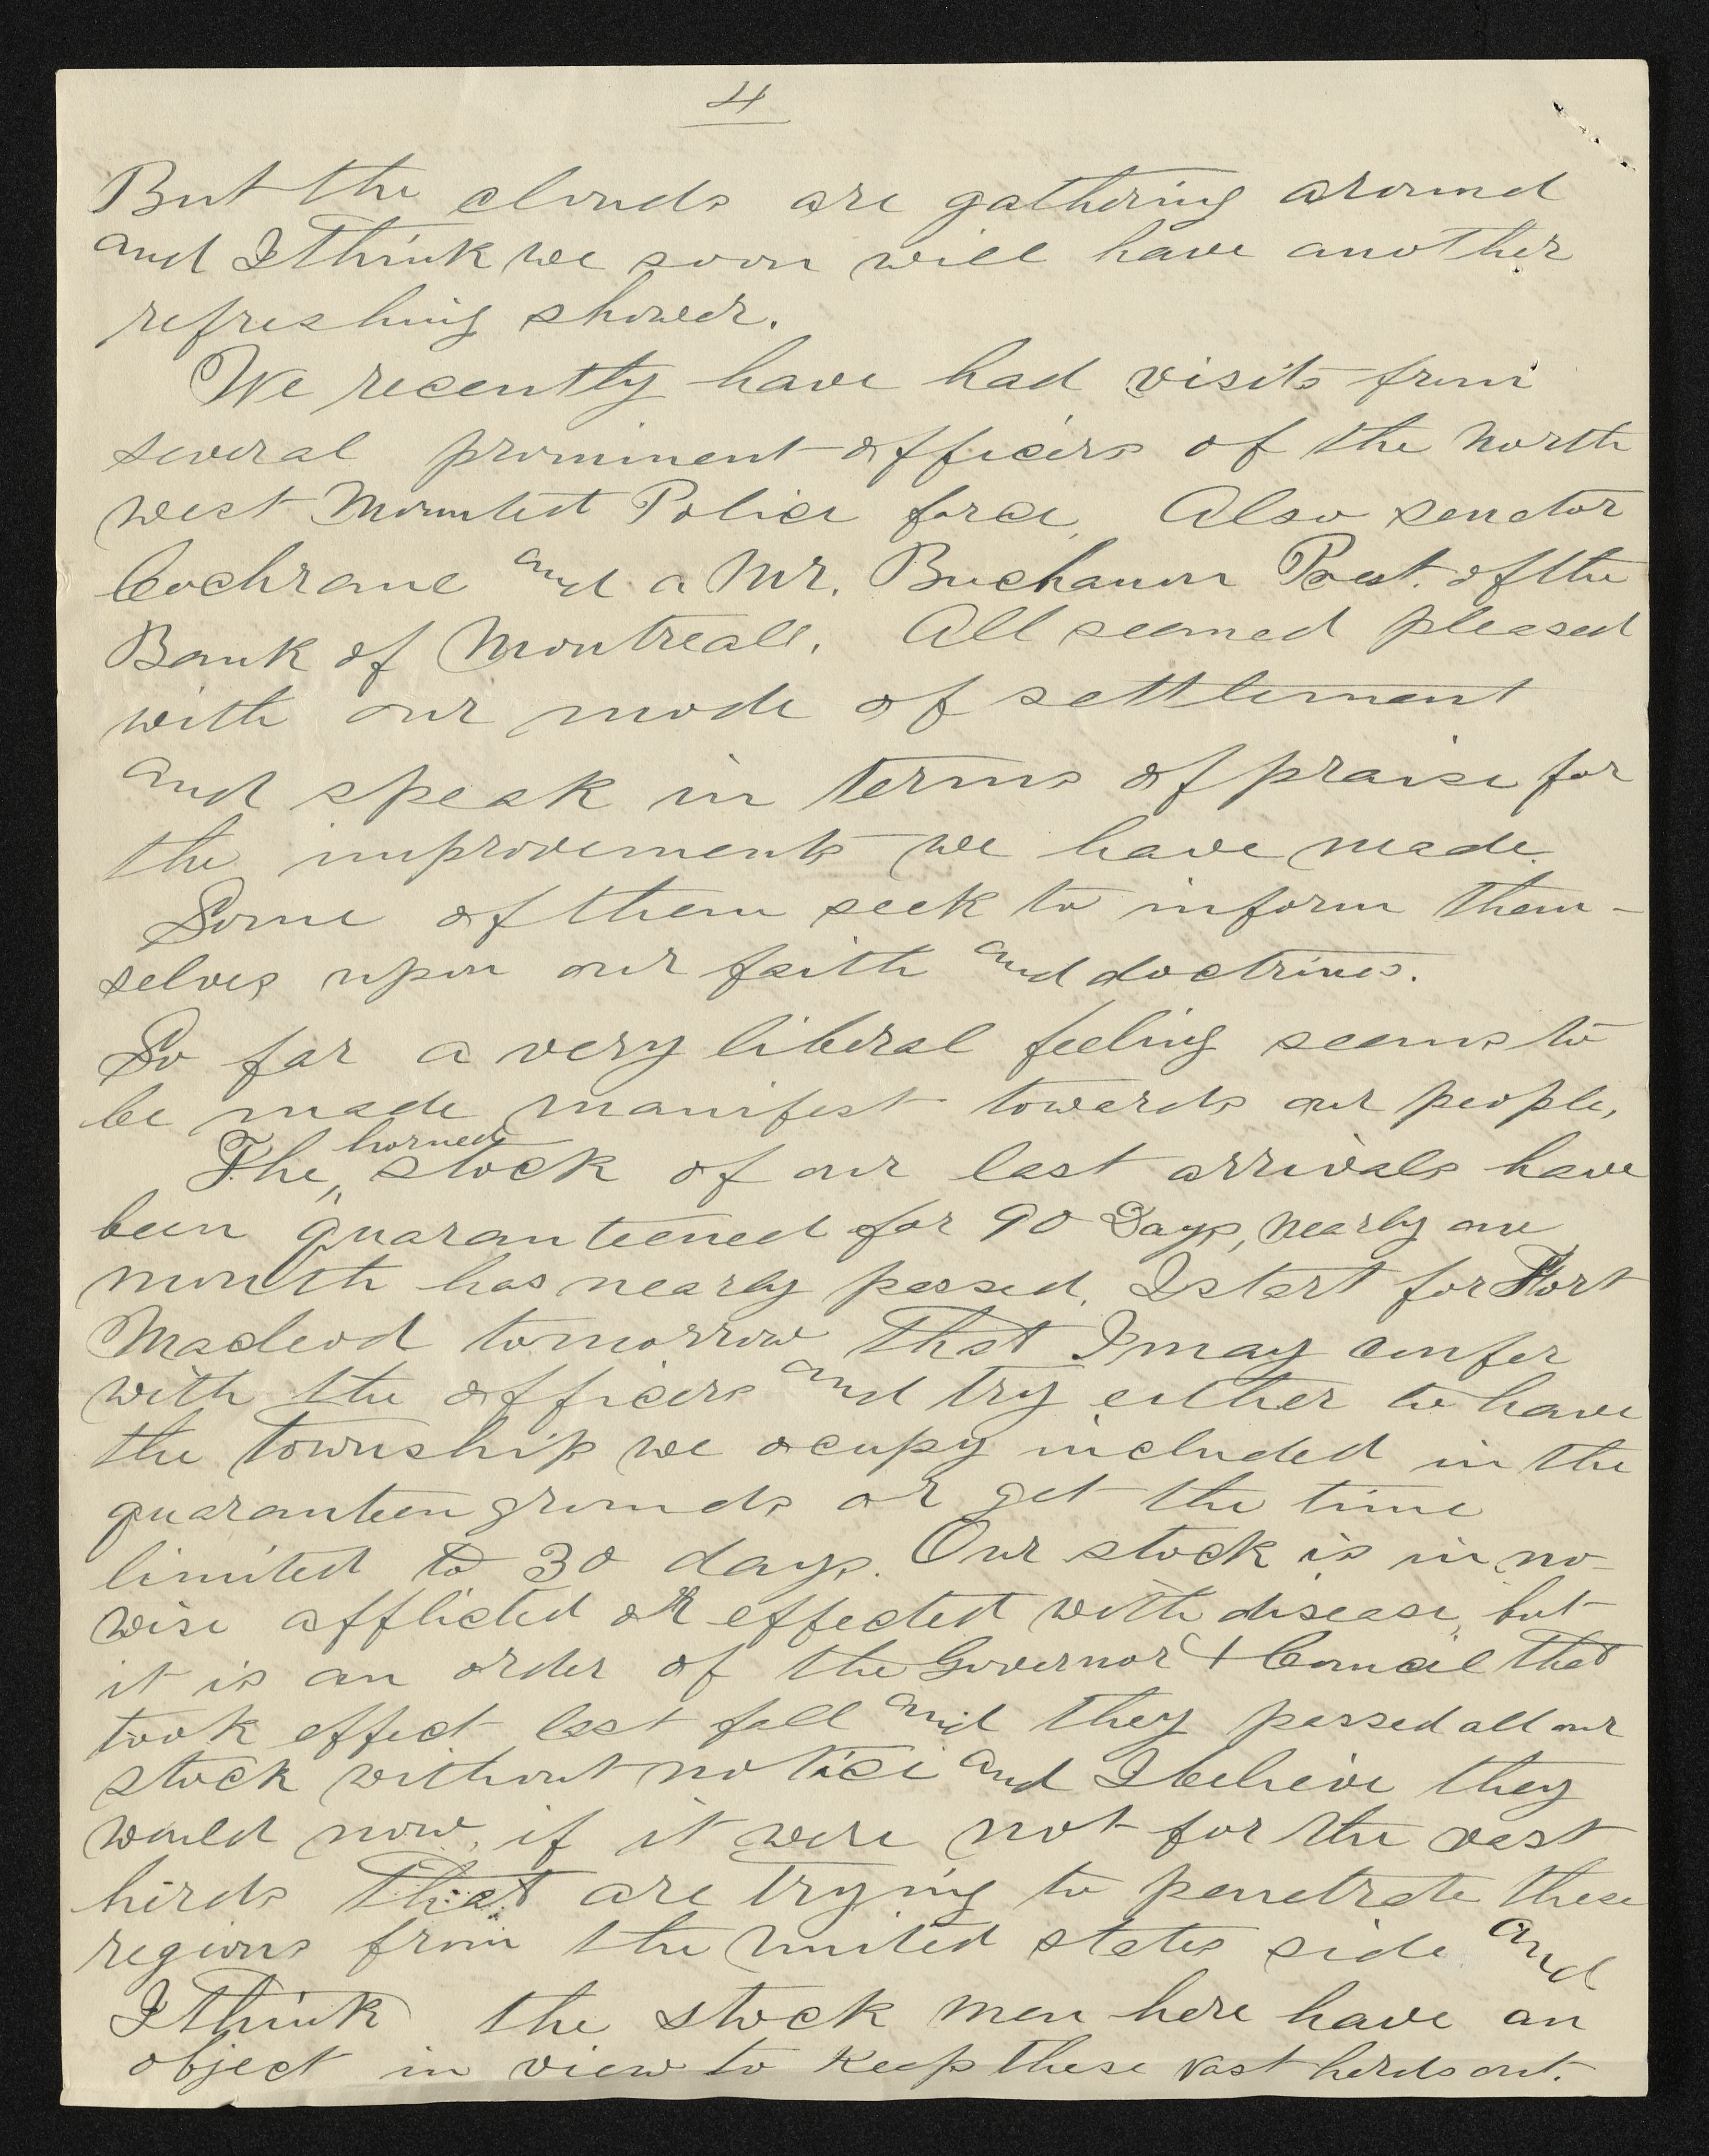 4
But the clouds are gathering around
and I think we soon will have another
refreshing shower.
We recently have had visits from
several prominent officers of the North
west Mounted Police force, Also senator
Cochrane and a Mr. Buchanon Prest. of the
Bank of Montreall. All seemed pleased
with our mode of settlement
and speak in terms of praise for
the improvements we have made.
Some of them seek to inform them-
selves upon our faith and doctrines.
So far a very liberal feeling seems to
be made manifest towards our people,
horned
The stock of our last arrivals have
been quaranteened for 90 Days, nearly one
month has nearly passed. I start for Fort
Macleod tomorrow that I may confer
with the officers and try either to have
the township we ocupy included in the
quaranteen grounds or get the time
limited to 30 days. Our stock is in no-
wise afflicted or effected with disease, but
it is an order of the Governor & Council that
took effect last fall and they passed all our
stock without notice and I believe they
would now, if it were not for the vast
herds that are trying to penetrate these
regions from the united states side and
I think the stock men here have an
object in view to keep these vast herds out.